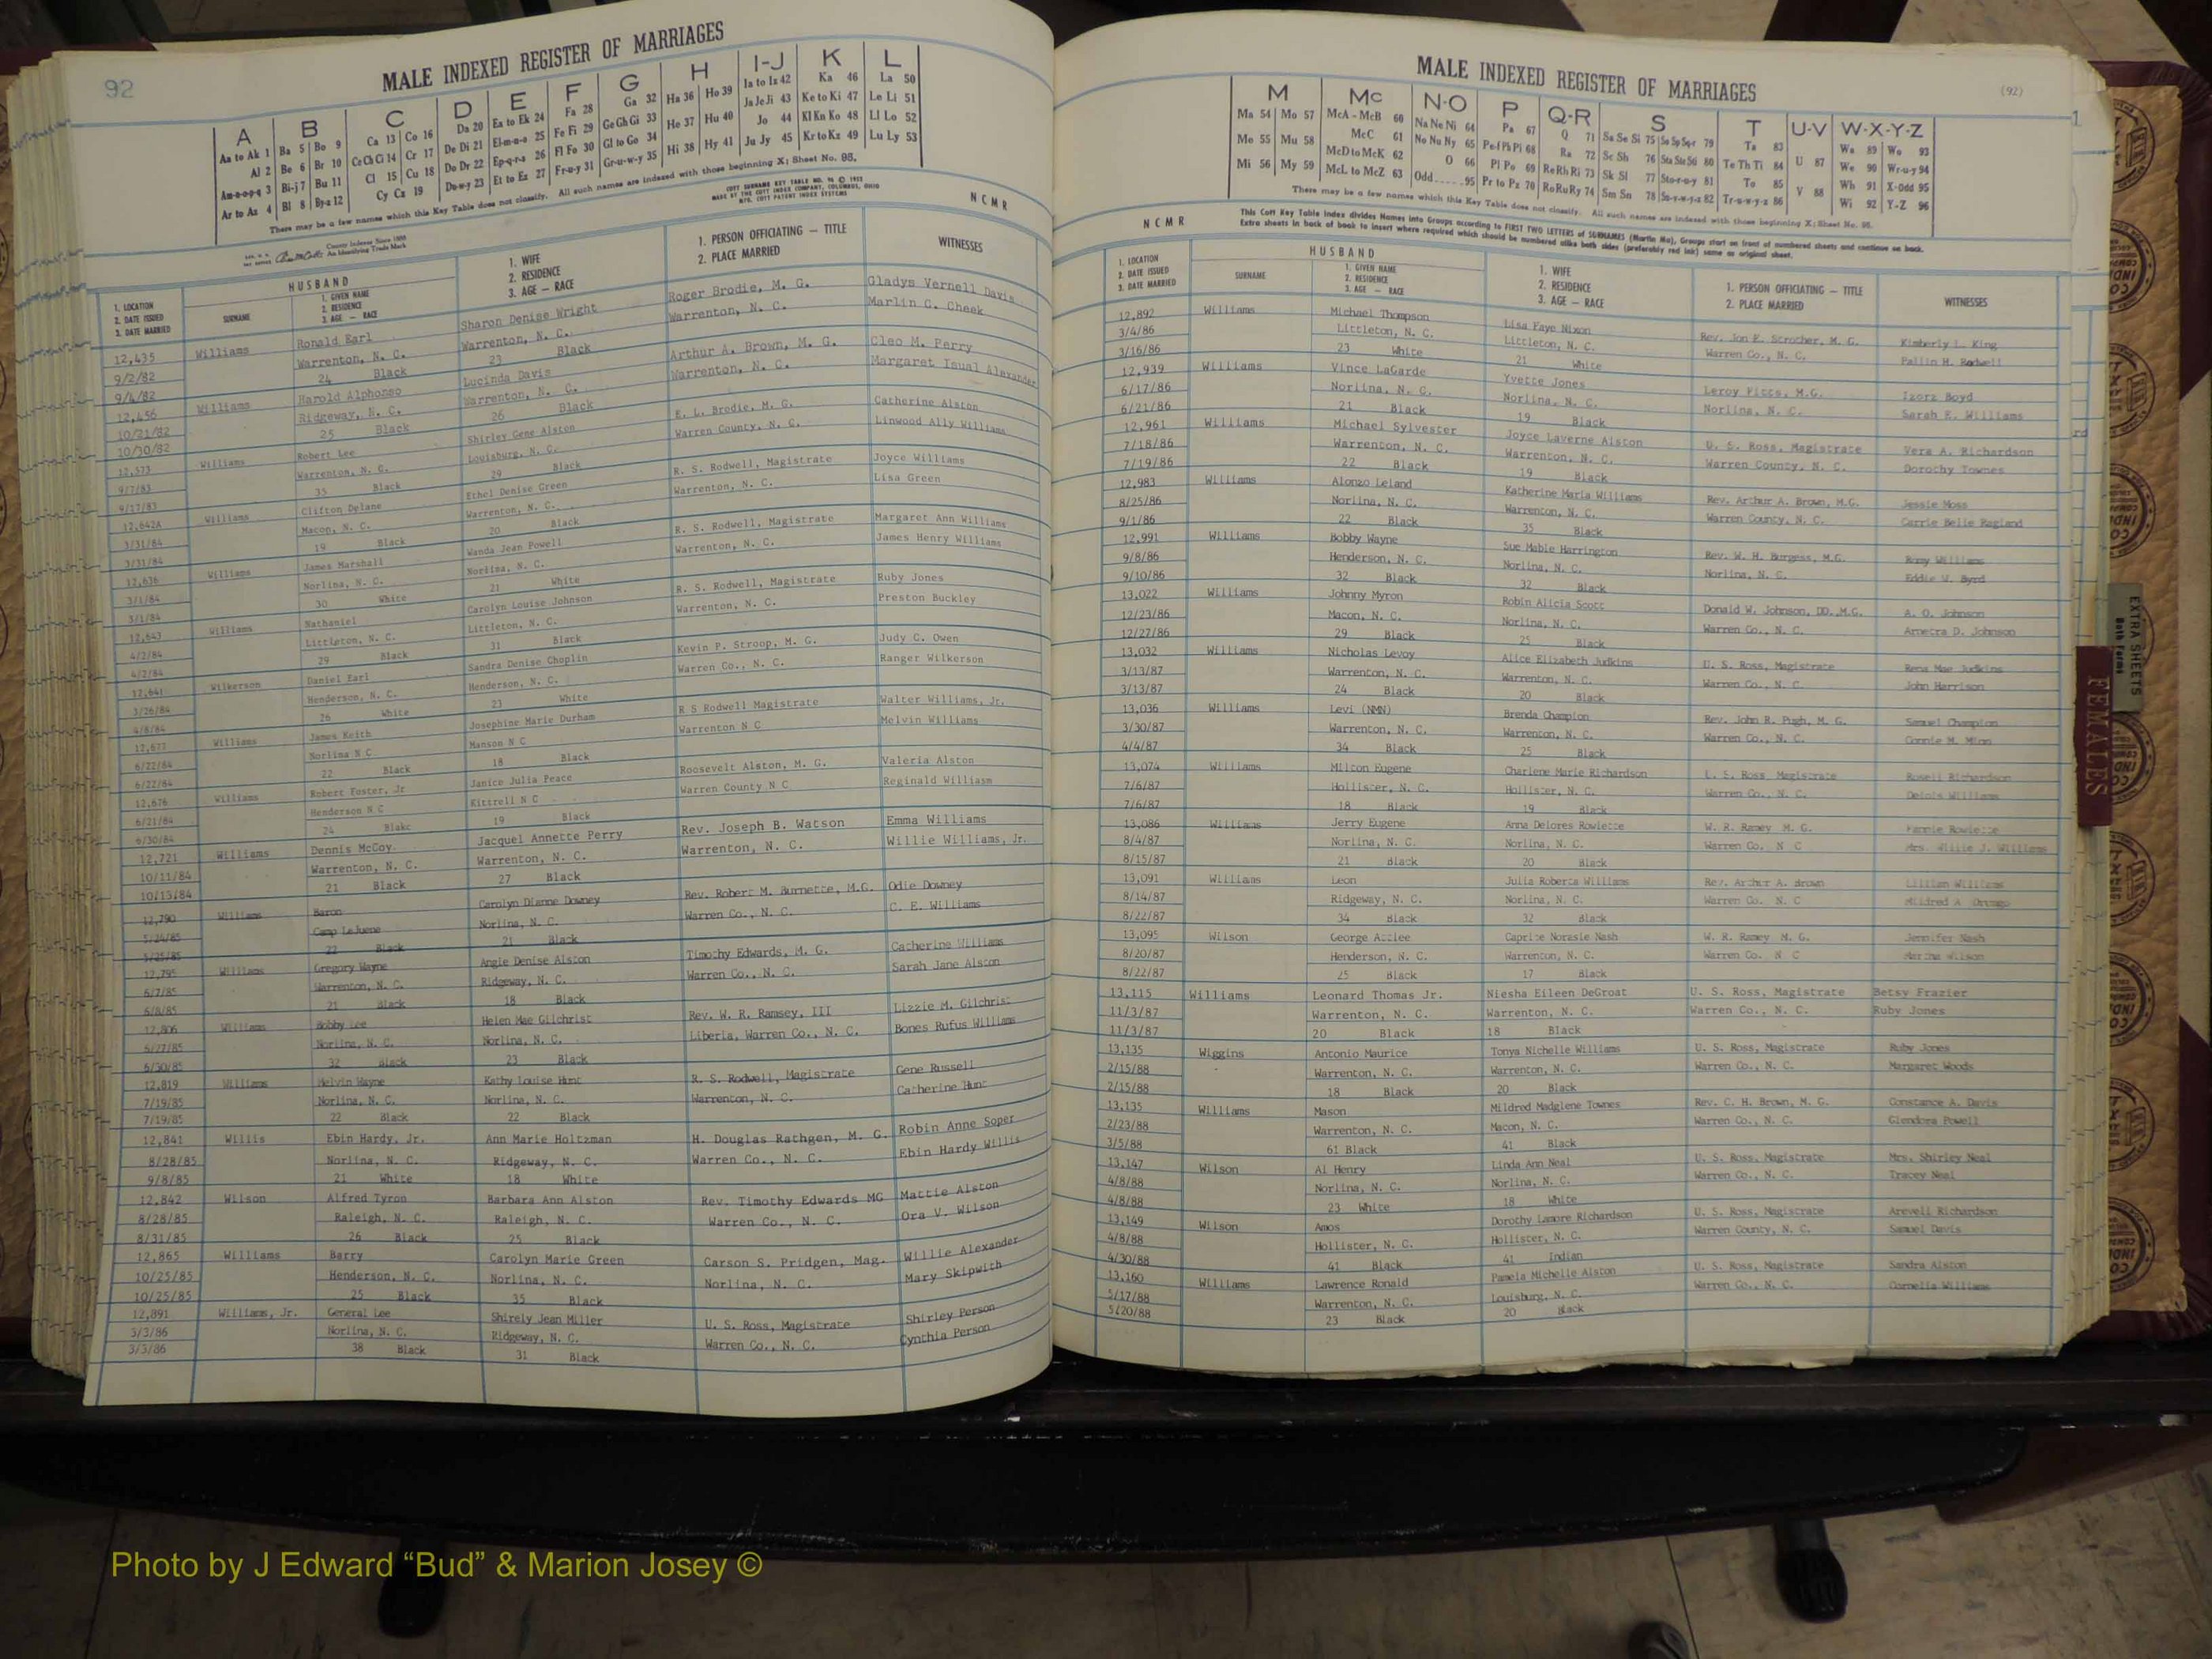 92
MALE INDEXED REGISTER OF MARRIAGES
A B C D E F G H I-J K L
Aa to Ak 1 Ba 5 Bo 9 Ca 13 Co 16 Da 20 Ea to Ek 24 Fa 28 Ga 32 Ha 36 Ho 39 Ia to Iz 42 Ka 46 La 50
Al 2 Be 6 Br 10 Ce Ch Ci 14 Cr 17 De Di 21 El-m-n-o 25 Fe Fi 29 Ge Gh Gi 33 He 37 Hu 40 Ja Je Ji 43 Ke to Ki 47 Le Li 51
Am-n-o-p-q 3 Bi-j 7 Bu 11 Cl 15 Cu 18 Do Dr 22 Ep-q-r-s 26 Fl Fo 30 Gl to Go 34 Hi 38 Hy 41 Jo 44 Kl Kn Ko 48 Ll Lo 52
Ar to Az 4 Bl 8 By-z 12 Cy Cz 19 Du-w-y 23 Et to Ez 27 Fr-u-y 31 Gr-u-w-y 35 Ju Jy 45 Kr to Kz 49 Lu Ly 53
There may be a few names which this Key Table does not classify. All such names are indexed with those beginning X; Sheet No. 95.
N C M R
HUSBAND
1. LOCATION 2. DATE ISSUED 3. DATE MARRIED
SURNAME
1. GIVEN NAME 2. RESIDENCE 3. AGE — RACE
1. WIFE 2. RESIDENCE 3. AGE — RACE
1. PERSON OFFICIATING — TITLE 2. PLACE MARRIED
WITNESSES
12,435 Williams Ronald Earl Sharon Denise Wright Roger Brodie, M. G. Gladys Vernell Davis
9/2/82 Warrenton, N. C. Warrenton, N. C. Warrenton, N. C. Marlin C. Cheek
9/4/82 24 Black 23 Black
12,456 Williams Harold Alphonso Lucinda Davis Arthur A. Brown, M. G. Cleo M. Perry
10/21/82 Ridgeway, N. C. Warrenton, N. C. Warrenton, N. C. Margaret Isual Alexander
10/30/82 25 Black 26 Black
12,573 Williams Robert Lee Shirley Gene Alston E. L. Brodie, M. G. Catherine Alston
9/7/83 Warrenton, N. C. Louisburg, N. C. Warren County, N. C. Linwood Ally Williams
9/17/83 35 Black 29 Black
12,642A Williams Clifton Delane Ethel Denise Green R. S. Rodwell, Magistrate Joyce Williams
3/31/84 Macon, N. C. Warrenton, N. C. Warrenton, N. C. Lisa Green
3/31/84 19 Black 20 Black
12,636 Williams James Marshall Wanda Jean Powell R. S. Rodwell, Magistrate Margaret Ann Williams
3/1/84 Norlina, N. C. Norlina, N. C. Warrenton, N. C. James Henry Williams
3/1/84 30 White 21 White
12,643 Williams Nathaniel Carolyn Louise Johnson R. S. Rodwell, Magistrate Ruby Jones
4/2/84 Littleton, N. C. Littleton, N. C. Warrenton, N. C. Preston Buckley
4/2/84 29 Black 31 Black
12,641 Wilkerson Daniel Earl Sandra Denise Choplin Kevin P. Stroop, M. G. Judy C. Owen
3/26/84 Henderson, N. C. Henderson, N. C. Warren Co., N. C. Ranger Wilkerson
4/8/84 26 White 23 White
12,677 Williams James Keith Josephine Marie Durham R S Rodwell Magistrate Walter Williams, Jr.
6/22/84 Norlina N C Manson N C Warrenton N C Melvin Williams
6/22/84 22 Black 18 Black
12,676 Williams Robert Foster, Jr Janice Julia Peace Roosevelt Alston, M. G. Valeria Alston
6/21/84 Henderson N C Kittrell N C Warren County N C Reginald Williasm
6/30/84 24 Blakc 19 Black
12,721 Williams Dennis McCoy Jacquel Annette Perry Rev. Joseph B. Watson Emma Williams
10/11/84 Warrenton, N. C. Warrenton, N. C. Warrenton, N. C. Willie Williams, Jr.
10/13/84 21 Black 27 Black
12,790 Williams Baron Carolyn Dianne Downey Rev. Robert M. Burnette, M.G. Odie Downey
5/24/85 Camp LeJuene Norlina, N. C. Warren Co., N. C. C. E. Williams
5/25/85 22 Black 21 Black
12,795 Williams Gregory Wayne Angie Denise Alston Timothy Edwards, M. G. Catherine Williams
6/7/85 Warrenton, N. C. Ridgeway, N. C. Warren Co., N. C. Sarah Jane Alston
6/8/85 21 Black 18 Black
12,806 Williams Bobby Lee Helen Mae Gilchrist Rev. W. R. Ramsey, III Lizzie M. Gilchrist
6/27/85 Norlina, N. C. Norlina, N. C. Liberia, Warren Co., N. C. Bones Rufus Williams
6/30/85 32 Black 23 Black
12,819 Williams Melvin Wayne Kathy Louise Hunt R. S. Rodwell, Magistrate Gene Russell
7/19/85 Norlina, N. C. Norlina, N. C. Warrenton, N. C. Catherine Hunt
7/19/85 22 Black 22 Black
12,841 Willis Ebin Hardy, Jr. Ann Marie Holtzman H. Douglas Rathgen, M. G. Robin Anne Soper
8/28/85 Norlina, N. C. Ridgeway, N. C. Warren Co., N. C. Ebin Hardy Willis
9/8/85 21 White 18 White
12,842 Wilson Alfred Tyron Barbara Ann Alston Rev. Timothy Edwards MG Mattie Alston
8/28/85 Raleigh, N. C. Raleigh, N. C. Warren Co., N. C. Ora V. Wilson
8/31/85 26 Black 25 Black
12,865 Williams Barry Carolyn Marie Green Carson S. Pridgen, Mag. Willie Alexander
10/25/85 Henderson, N. C. Norlina, N. C. Norlina, N. C. Mary Skipwith
10/25/85 25 Black 35 Black
12,891 Williams, Jr. General Lee Shirely Jean Miller U. S. Ross, Magistrate Shirley Person
3/3/86 Norlina, N. C. Ridgeway, N. C. Warren Co., N. C. Cynthia Person
3/3/86 38 Black 31 Black
MALE INDEXED REGISTER OF MARRIAGES
(92)
M Mc N-O P Q-R S T U-V W-X-Y-Z
Ma 54 Mo 57 McA - McB 60 Na Ne Ni 64 Pa 67 Q 71 Sa Se Si 75 Sn Sp Sq-r 79 Ta 83 Wa 89 Wo 93
Me 55 Mu 58 McC 61 No Nu Ny 65 Pe-f Ph Pi 68 Ra 72 Sc Sh 76 Sta Ste Sti 80 Te Th Ti 84 U 87 We 90 Wr-u-y 94
Mi 56 My 59 McD to McK 62 O 66 Pl Po 69 Re Rh Ri 73 Sk Sl 77 Sto-r-u-y 81 To 85 Wh 91 X-Odd 95
McL to McZ 63 Odd 95 Pr to Pz 70 Ro Ru Ry 74 Sm Sn 78 Su-v-w-y-z 82 Tr-u-w-y-z 86 V 88 Wi 92 Y-Z 96
There may be a few names which this Key Table does not classify. All such names are indexed with those beginning X; Sheet No. 95.
This Cott Key Table Index divides Names into Groups according to FIRST TWO LETTERS of SURNAMES (Martin Ma), Groups start on front of numbered sheets and continue on back.
Extra sheets in back of book to insert where required which should be numbered alike both sides (preferably red ink) same as original sheet.
N C M R
HUSBAND
1. LOCATION 2. DATE ISSUED 3. DATE MARRIED
SURNAME
1. GIVEN NAME 2. RESIDENCE 3. AGE — RACE
1. WIFE 2. RESIDENCE 3. AGE — RACE
1. PERSON OFFICIATING — TITLE 2. PLACE MARRIED
WITNESSES
12,892 Williams Michael Thompson Lisa Faye Nixon Rev. Jon E. Strother, M. G. Kimberly L. King
3/4/86 Littleton, N. C. Littleton, N. C. Warren Co., N. C. Pallin H. Rodwell
3/16/86 23 White 21 White
12,939 Williams Vince LaGarde Yvette Jones Leroy Pitts, M.G. Izora Boyd
6/17/86 Norlina, N. C. Norlina, N. C. Norlina, N. C. Sarah E. Williams
6/21/86 21 Black 19 Black
12,961 Williams Michael Sylvester Joyce Laverne Alston U. S. Ross, Magistrate Vera A. Richardson
7/18/86 Warrenton, N. C. Warrenton, N. C. Warren County, N. C. Dorothy Townes
7/19/86 22 Black 19 Black
12,983 Williams Alonzo Leland Katherine Maria Williams Rev. Arthur A. Brown, M.G. Jessie Moss
8/25/86 Norlina, N. C. Warrenton, N. C. Warren County, N. C. Carrie Belle Ragland
9/1/86 22 Black 35 Black
12,991 Williams Bobby Wayne Sue Mable Harrington Rev. W. H. Burgess, M.G. Romy Williams
9/8/86 Henderson, N. C. Norlina, N. C. Norlina, N. C. Eddie W. Byrd
9/10/86 32 Black 32 Black
13,022 Williams Johnny Myron Robin Alicia Scott Donald W. Johnson, DD.,M.G. A. O. Johnson
12/23/86 Macon, N. C. Norlina, N. C. Warren Co., N. C. Arnetra D. Johnson
12/27/86 29 Black 25 Black
13,032 Williams Nicholas Levoy Alice Elizabeth Judkins U. S. Ross, Magistrate Rena Mae Judkins
3/13/87 Warrenton, N. C. Warrenton, N. C. Warren Co., N. C. John Harrison
3/13/87 24 Black 20 Black
13,036 Williams Levi (NMN) Brenda Champion Rev. John R. Pugh, M. G. Samuel Champion
3/30/87 Warrenton, N. C. Warrenton, N. C. Warren Co., N. C. Connie M.
4/4/87 34 Black 25 Black
13,074 Williams Milton Eugene Charlene Marie Richardson U. S. Ross, Magistrate Rosell Richardson
7/6/87 Hollister, N. C. Hollister, N. C. Warren Co., N. C. Williams
7/6/87 18 Black 19 Black
13,086 Williams Jerry Eugene Anna Delores Rowlette W. R. Ramey M. G. Fannie Rowlette
8/4/87 Norlina, N. C. Norlina, N. C. Warren Co. N C Mrs. Willie J. Williams
8/15/87 21 Black 20 Black
13,091 Williams Leon Julia Roberts Williams Rev. Arthur A. Brown Lillian Williams
8/14/87 Ridgeway, N. C. Norlina, N. C. Warren Co. N. C Mildred A
8/22/87 34 Black 32 Black
13,095 Wilson George Attlee Caprice Norasie Nash W. R. Ramey M. G. Jennifer Nash
8/20/87 Henderson, N. C. Warrenton, N. C. Warren Co. N C Martha Wilson
8/22/87 25 Black 17 Black
13,115 Williams Leonard Thomas Jr. Niesha Eileen DeGroat U. S. Ross, Magistrate Betsy Frazier
11/3/87 Warrenton, N. C. Warrenton, N. C. Warren Co., N. C. Ruby Jones
11/3/87 20 Black 18 Black
13,135 Wiggins Antonio Maurice Tonya Nichelle Williams U. S. Ross, Magistrate Ruby Jones
2/15/88 Warrenton, N. C. Warrenton, N. C. Warren Co., N. C. Margaret Woods
2/15/88 18 Black 20 Black
13,135 Williams Mason Mildred Madglene Townes Rev. C. H. Brown, M. G. Constance A. Davis
2/23/88 Warrenton, N. C. Macon, N. C. Warren Co., N. C. Glendora Powell
3/5/88 61 Black 41 Black
13,147 Wilson Al Henry Linda Ann Neal U. S. Ross, Magistrate Mrs. Shirley Neal
4/8/88 Norlina, N. C. Norlina, N. C. Warren Co., N. C. Tracey Neal
4/8/88 23 White 18 White
13,149 Wilson Amos Dorothy Lamore Richardson U. S. Ross, Magistrate Arevell Richardson
4/8/88 Hollister, N. C. Hollister, N. C. Warren County, N. C. Samuel Davis
4/30/88 41 Black 41 Indian
13,160 Williams Lawrence Ronald Pamela Michelle Alston U. S. Ross, Magistrate Sandra Alston
5/17/88 Warrenton, N. C. Louisburg, N. C. Warren Co., N. C. Cornelia Williams
5/20/88 23 Black 20 Black
EXTRA SHEETS
Both Forms
FEMALES
Photo by J Edward “Bud” & Marion Josey ©